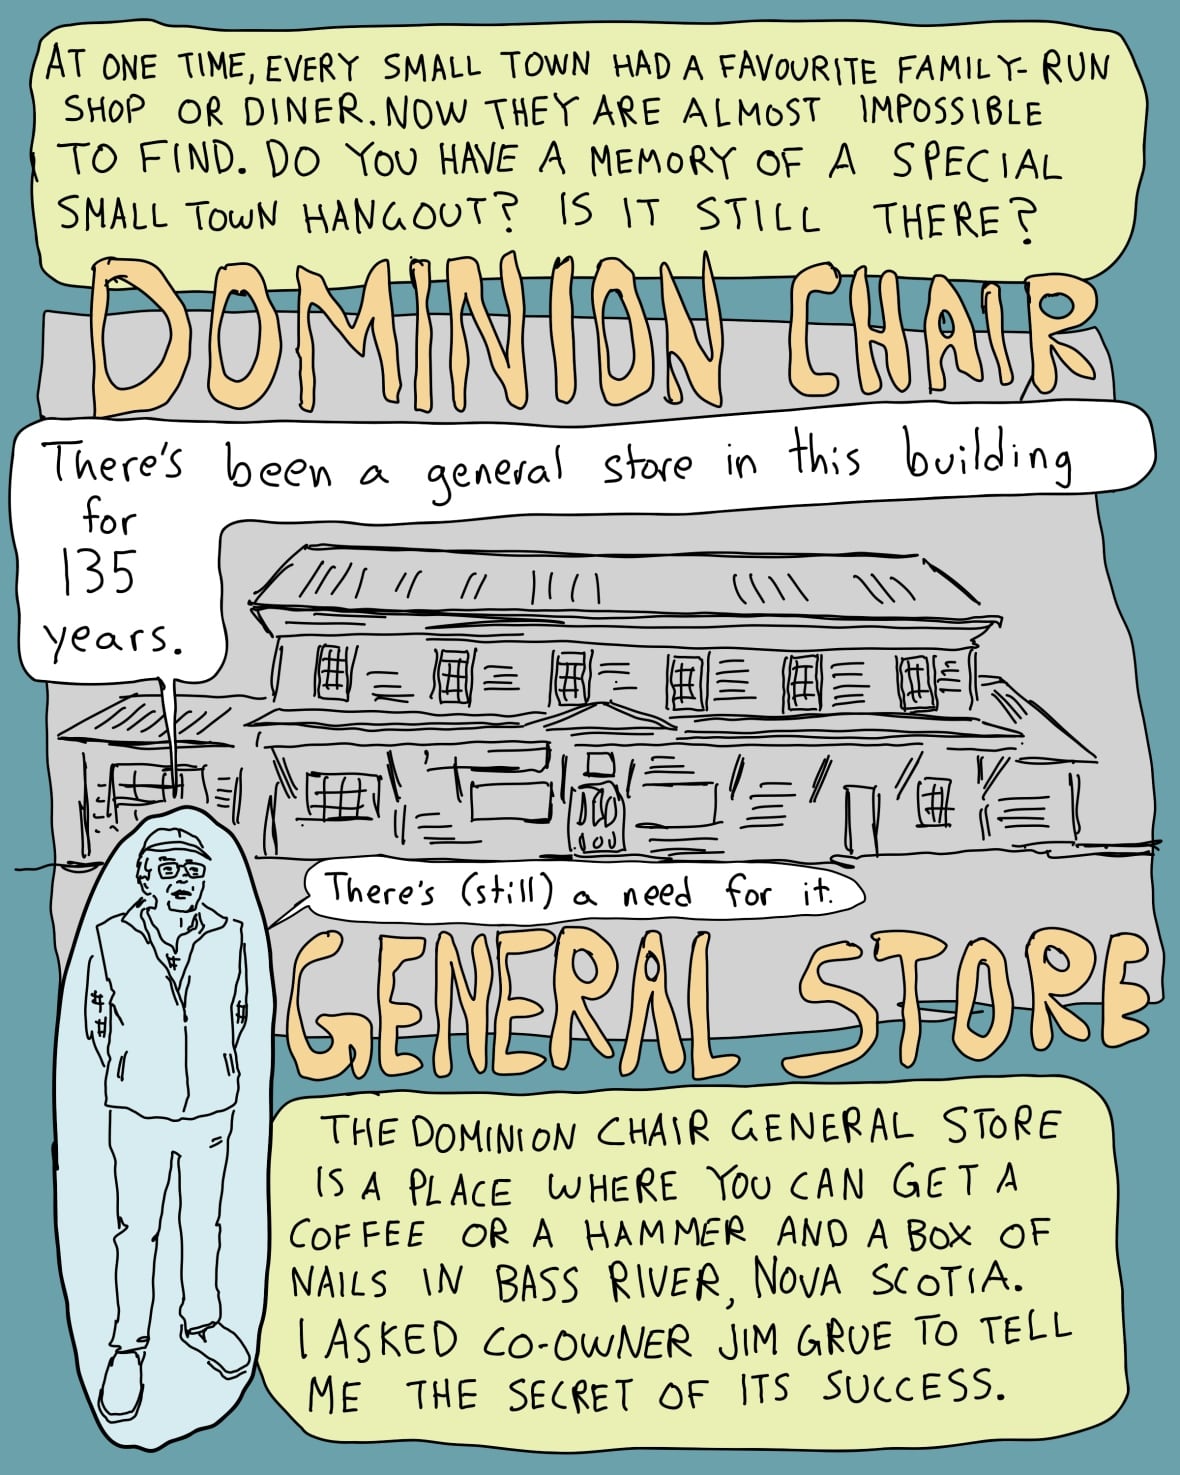 AT ONE TIME, EVERY SMALL TOWN HAD A FAVOURITE FAMILY-RUN
SHOP OR DINER. NOW THEY ARE ALMOST IMPOSSIBLE
TO FIND. DO YOU HAVE A MEMORY OF A SPECIAL
SMALL TOWN HANGOUT? IS IT STILL THERE?
DOMINION CHAIR
There's been a general store in this building
for
135
years.
There's (still) a need for it.
GENERAL STORE
THE DOMINION CHAIR GENERAL STORE
IS A PLACE WHERE YOU CAN GET A
COFFEE OR A HAMMER AND A BOX OF
NAILS IN BASS RIVER, NOVA SCOTIA.
I ASKED CO-OWNER JIM GRUE TO TELL
ME THE SECRET OF ITS SUCCESS.